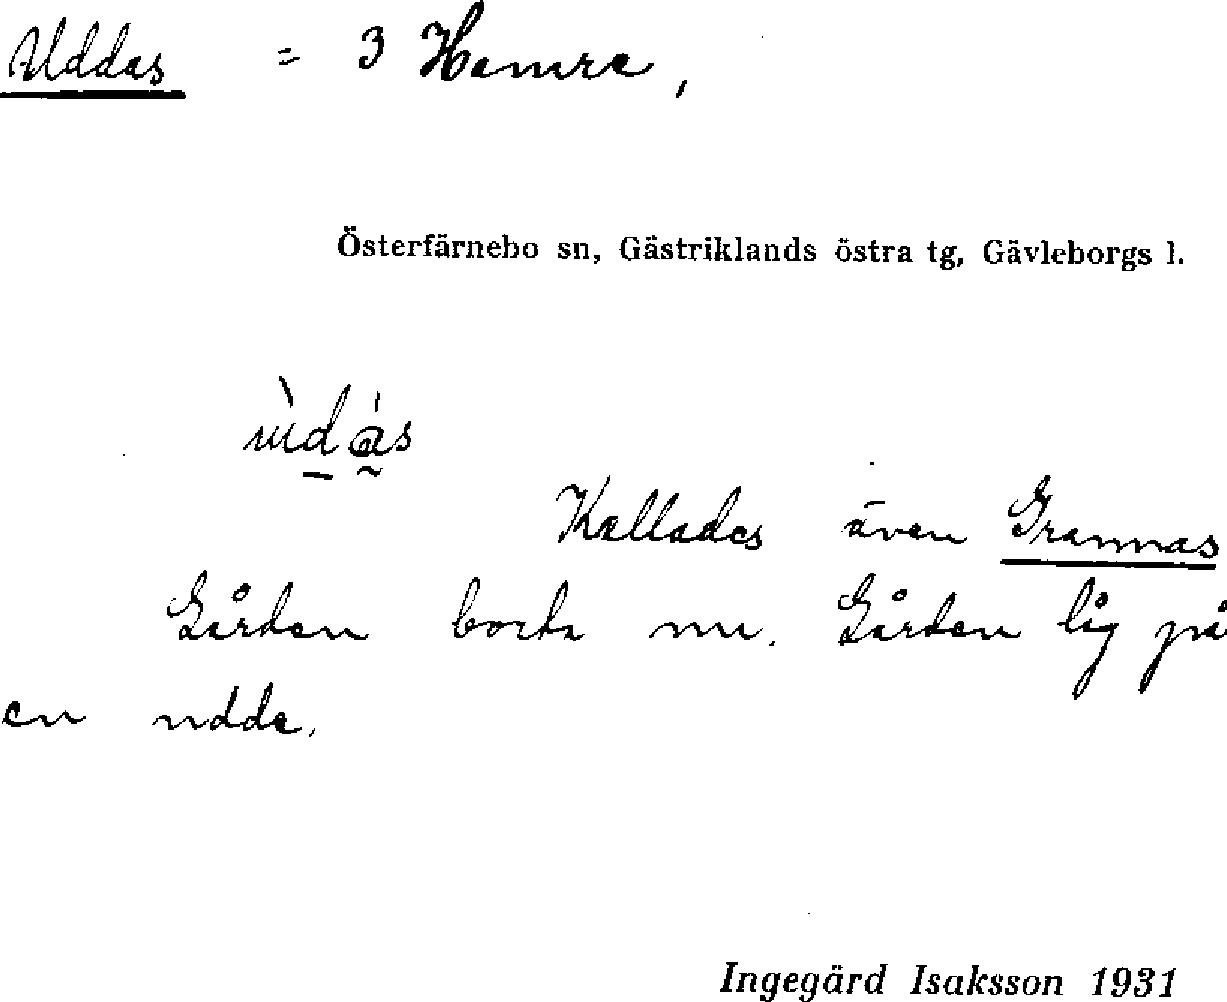 Uddas = 3 Hamra,
Österfärnebo sn, Gästriklands östra tg, Gävleborgs l.
Kallades även Grannas
Gården borta nu. Gården låg på
en udde.
Ingegärd Isaksson 1931